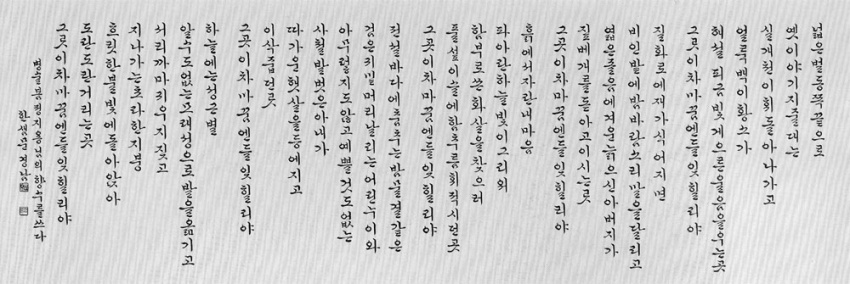 넓은벌동쪽끝으로
옛이야기지줄대는
실개천이휘돌아나가고
얼룩백이황소가
해설피금빛게으른울음을우는곳
그곳이차마꿈엔들잊힐리야
질화로에재가식어지면
비인밭에밤바람소리말을달리고
엷은졸음에겨운늙으신아버지가
짚베개를돋아고이시는곳
그곳이차마꿈엔들잊힐리야
흙에서자란내마음
파아란하늘빛이그리워
함부로쏜화살을찾으러
풀섶이슬에함추룸휘적시던곳
그곳이차마꿈엔들잊힐리야
전설바다에춤추는밤물결같은
검은귀밑머리날리는어린누이와
아무렇지도않고예쁠것도없는
사철발벗은아내가
따가운햇살을등에지고
이삭줍던곳
그곳이차마꿈엔들잊힐리야
하늘에는성근별
알수도없는모래성으로발을옮기고
서리까마귀우지짖고
지나가는초라한지붕
흐릿한불빛에돌아앉아
도란도란거리는곳
그곳이차마꿈엔들잊힐리야
정지용님의향수를쓰다